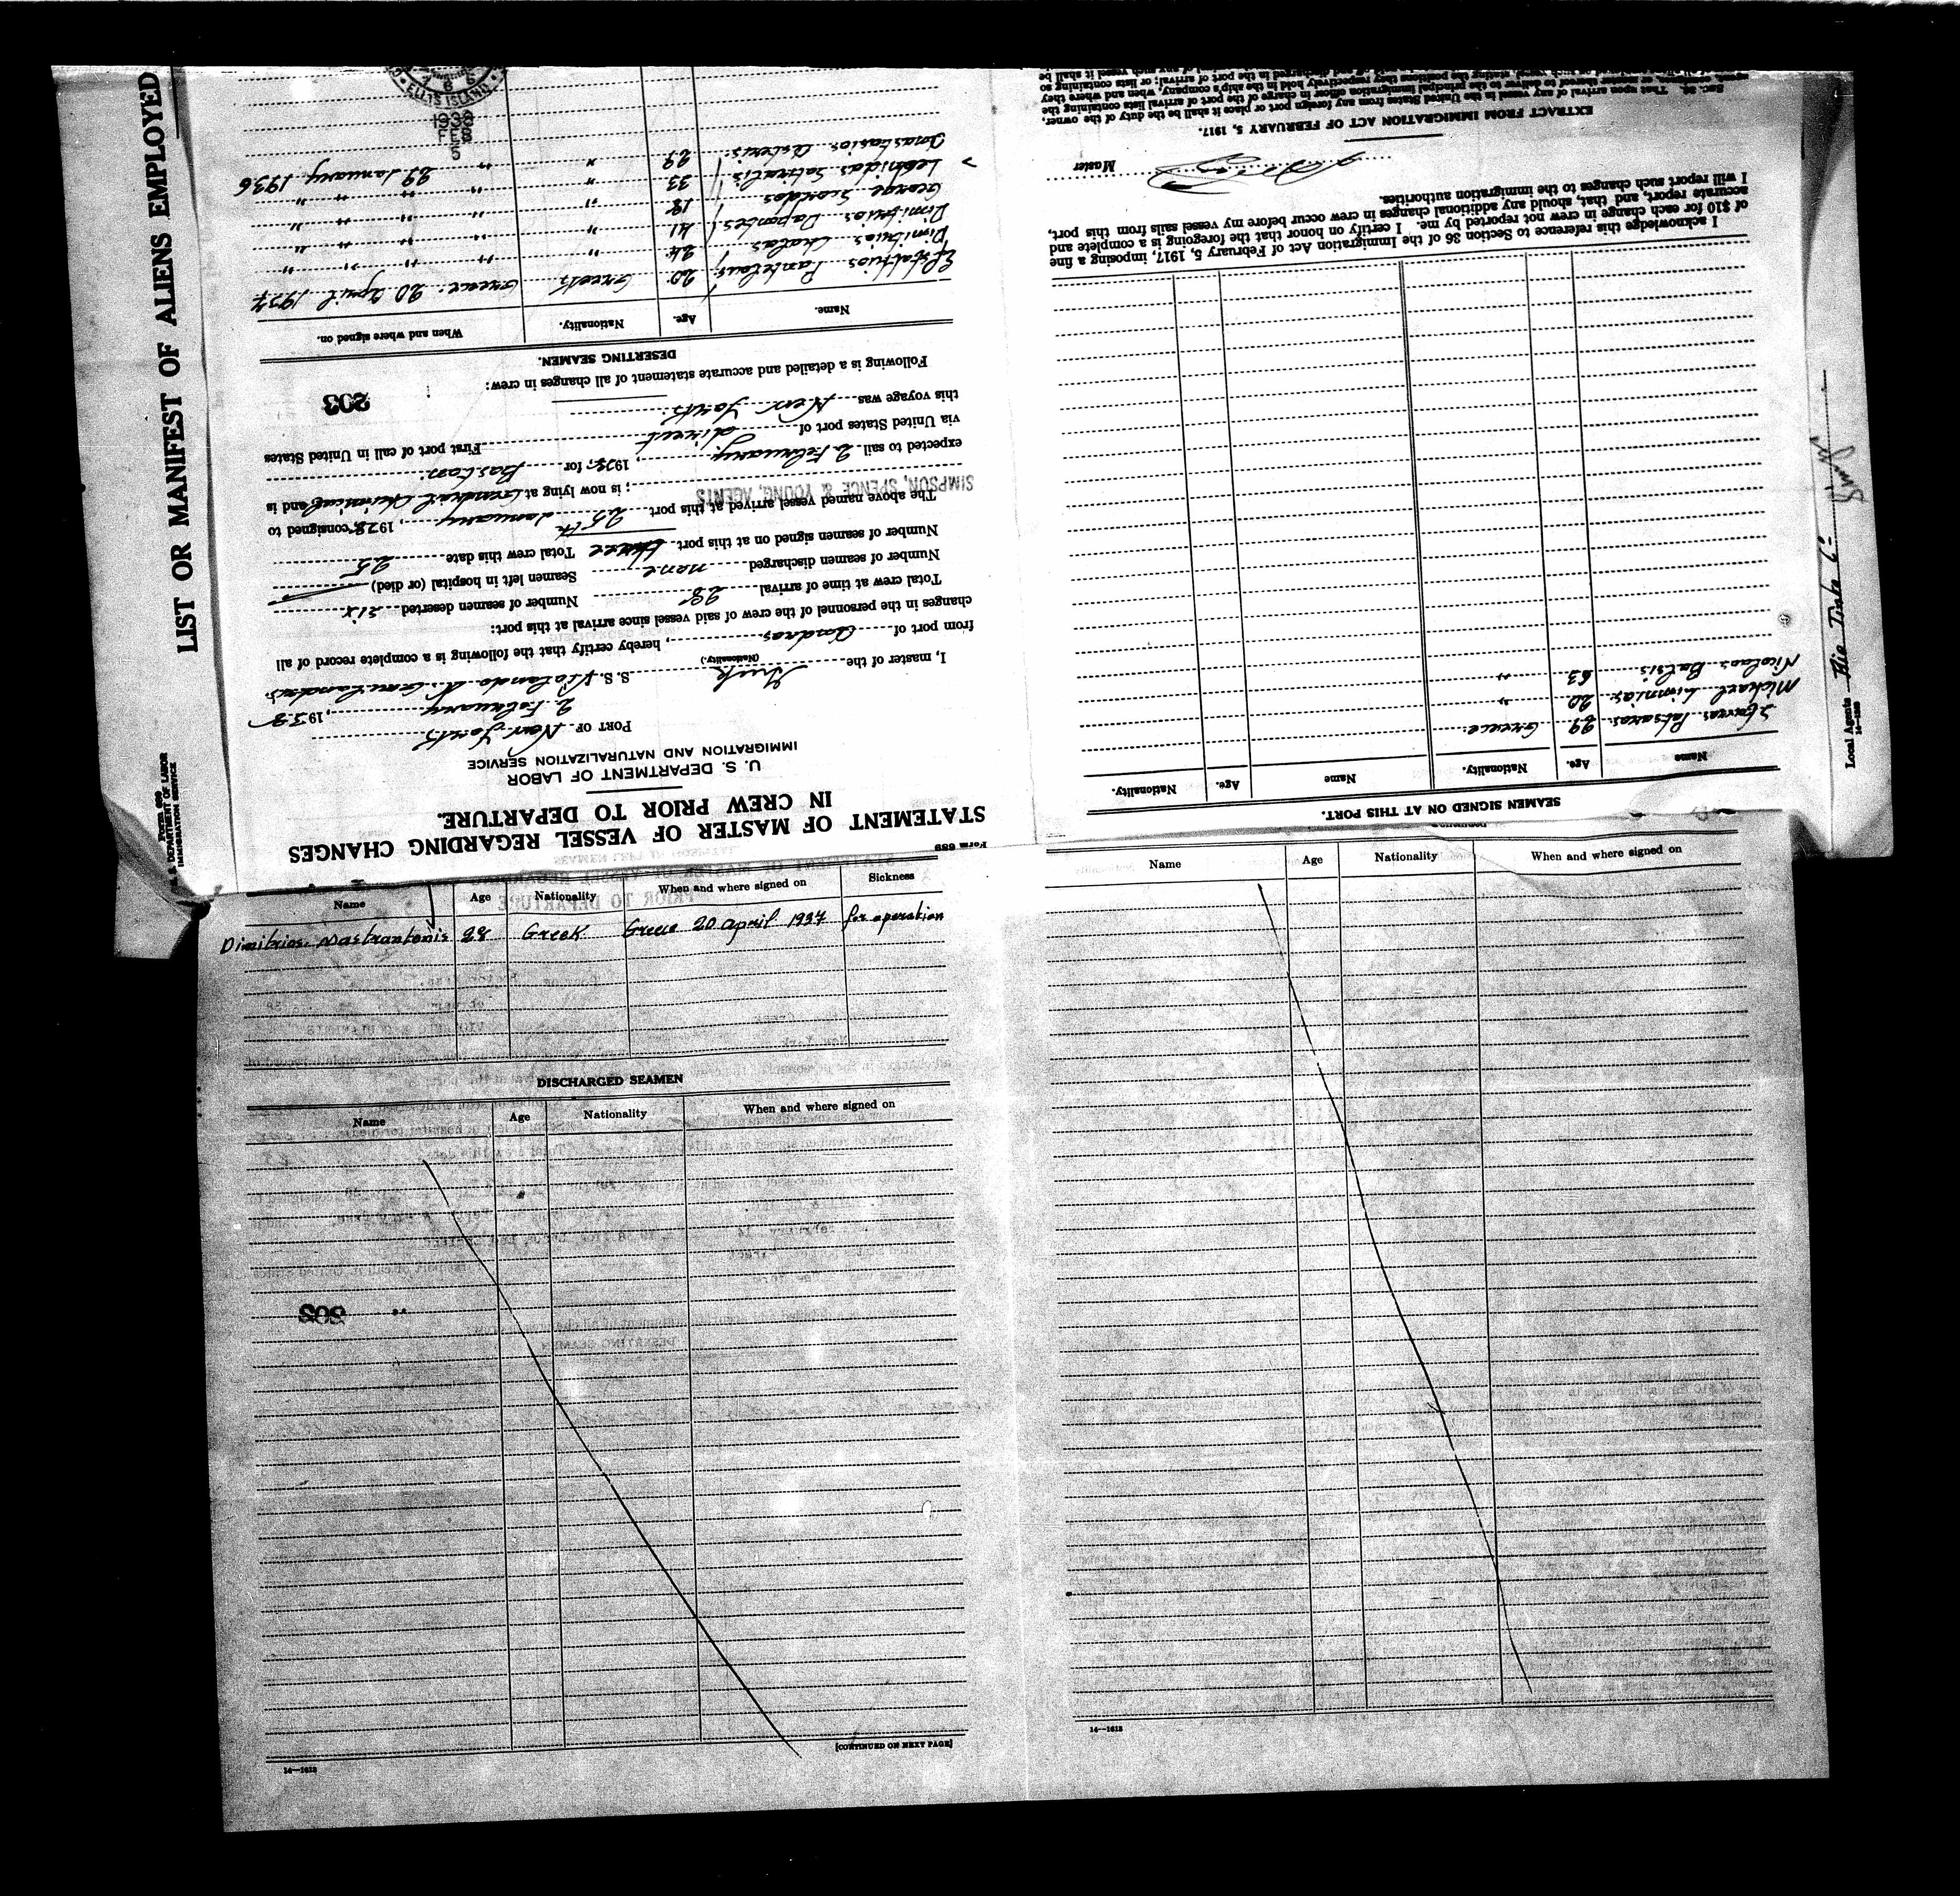 LIST OR MANIFEST OF ALIENS EMPLOYED
Form 689
U. S. DEPARTMENT OF LABOR
IMMIGRATION SERVICE
Form 689
STATEMENT OF MASTER OF VESSEL REGARDING CHANGES
IN CREW PRIOR TO DEPARTURE.
U. S. DEPARTMENT OF LABOR
IMMIGRATION AND NATURALIZATION SERVICE
PORT OF New York
2 February, 1938
I, master of the Greek S. S. Violando N. Goulandris
(Nationality.)
from port of Andros, hereby certify that the following is a complete record of all
changes in the personnel of the crew of said vessel since arrival at this port:
Total crew at time of arrival 28 Number of seamen deserted six
Number of seamen discharged none Seamen left in hospital (or died)
Number of seamen signed on at this port three Total crew this date 25
The above named vessel arrived at this port 25th January, 1938, consigned to
SIMPSON, SPENCE & YOUNG, AGENTS; is now lying at and
expected to sail 2 February, 1938, for Boston
via United States port of direct First port of call in United States
this voyage was New York.
Following is a detailed and accurate statement of all changes in crew:
203
DESERTING SEAMEN.
Name. Age. Nationality. When and where signed on.
Efstathios Pantelous 20 Greek Greece 20 April 1937
Dimitrios Chalas 24 " " " " "
Dimitrios Papantes 41 " " " " "
George Scordos 18 " " " " "
Leonidas Satralis 33 " " 29 January 1936
Anastasios Asteris 29 " "
1938
FEB
5
ELLIS ISLAND
SEAMEN SIGNED ON AT THIS PORT.
Name Age. Nationality. Name Age. Nationality.
Stavros Patsaros 29 Greece
Michael Limnios 20 "
Nicolaos Batsis 63 "
I acknowledge this reference to Section 36 of the Immigration Act of February 5, 1917, imposing a fine
of $10 for each change in crew not reported by me. I certify on honor that the foregoing is a complete and
accurate report, and that, should any additional changes in crew occur before my vessel sails from this port,
I will report such changes to the immigration authorities.
Master
EXTRACT FROM IMMIGRATION ACT OF FEBRUARY 5, 1917.
SEC. 36. That upon arrival of any vessel in the United States from any foreign port or place it shall be the duty of the owner,
agent, consignee, or master thereof to deliver to the principal immigration officer in charge of the port of arrival lists containing the
Local Agents
14—1689
Name Age Nationality When and where signed on Sickness
Dimitrios Mastrantonis 28 Greek Greece 20 April 1937 for operation
DISCHARGED SEAMEN
Name Age Nationality When and where signed on
[CONTINUED ON NEXT PAGE]
14—1618
Name Age Nationality When and where signed on
14—1618